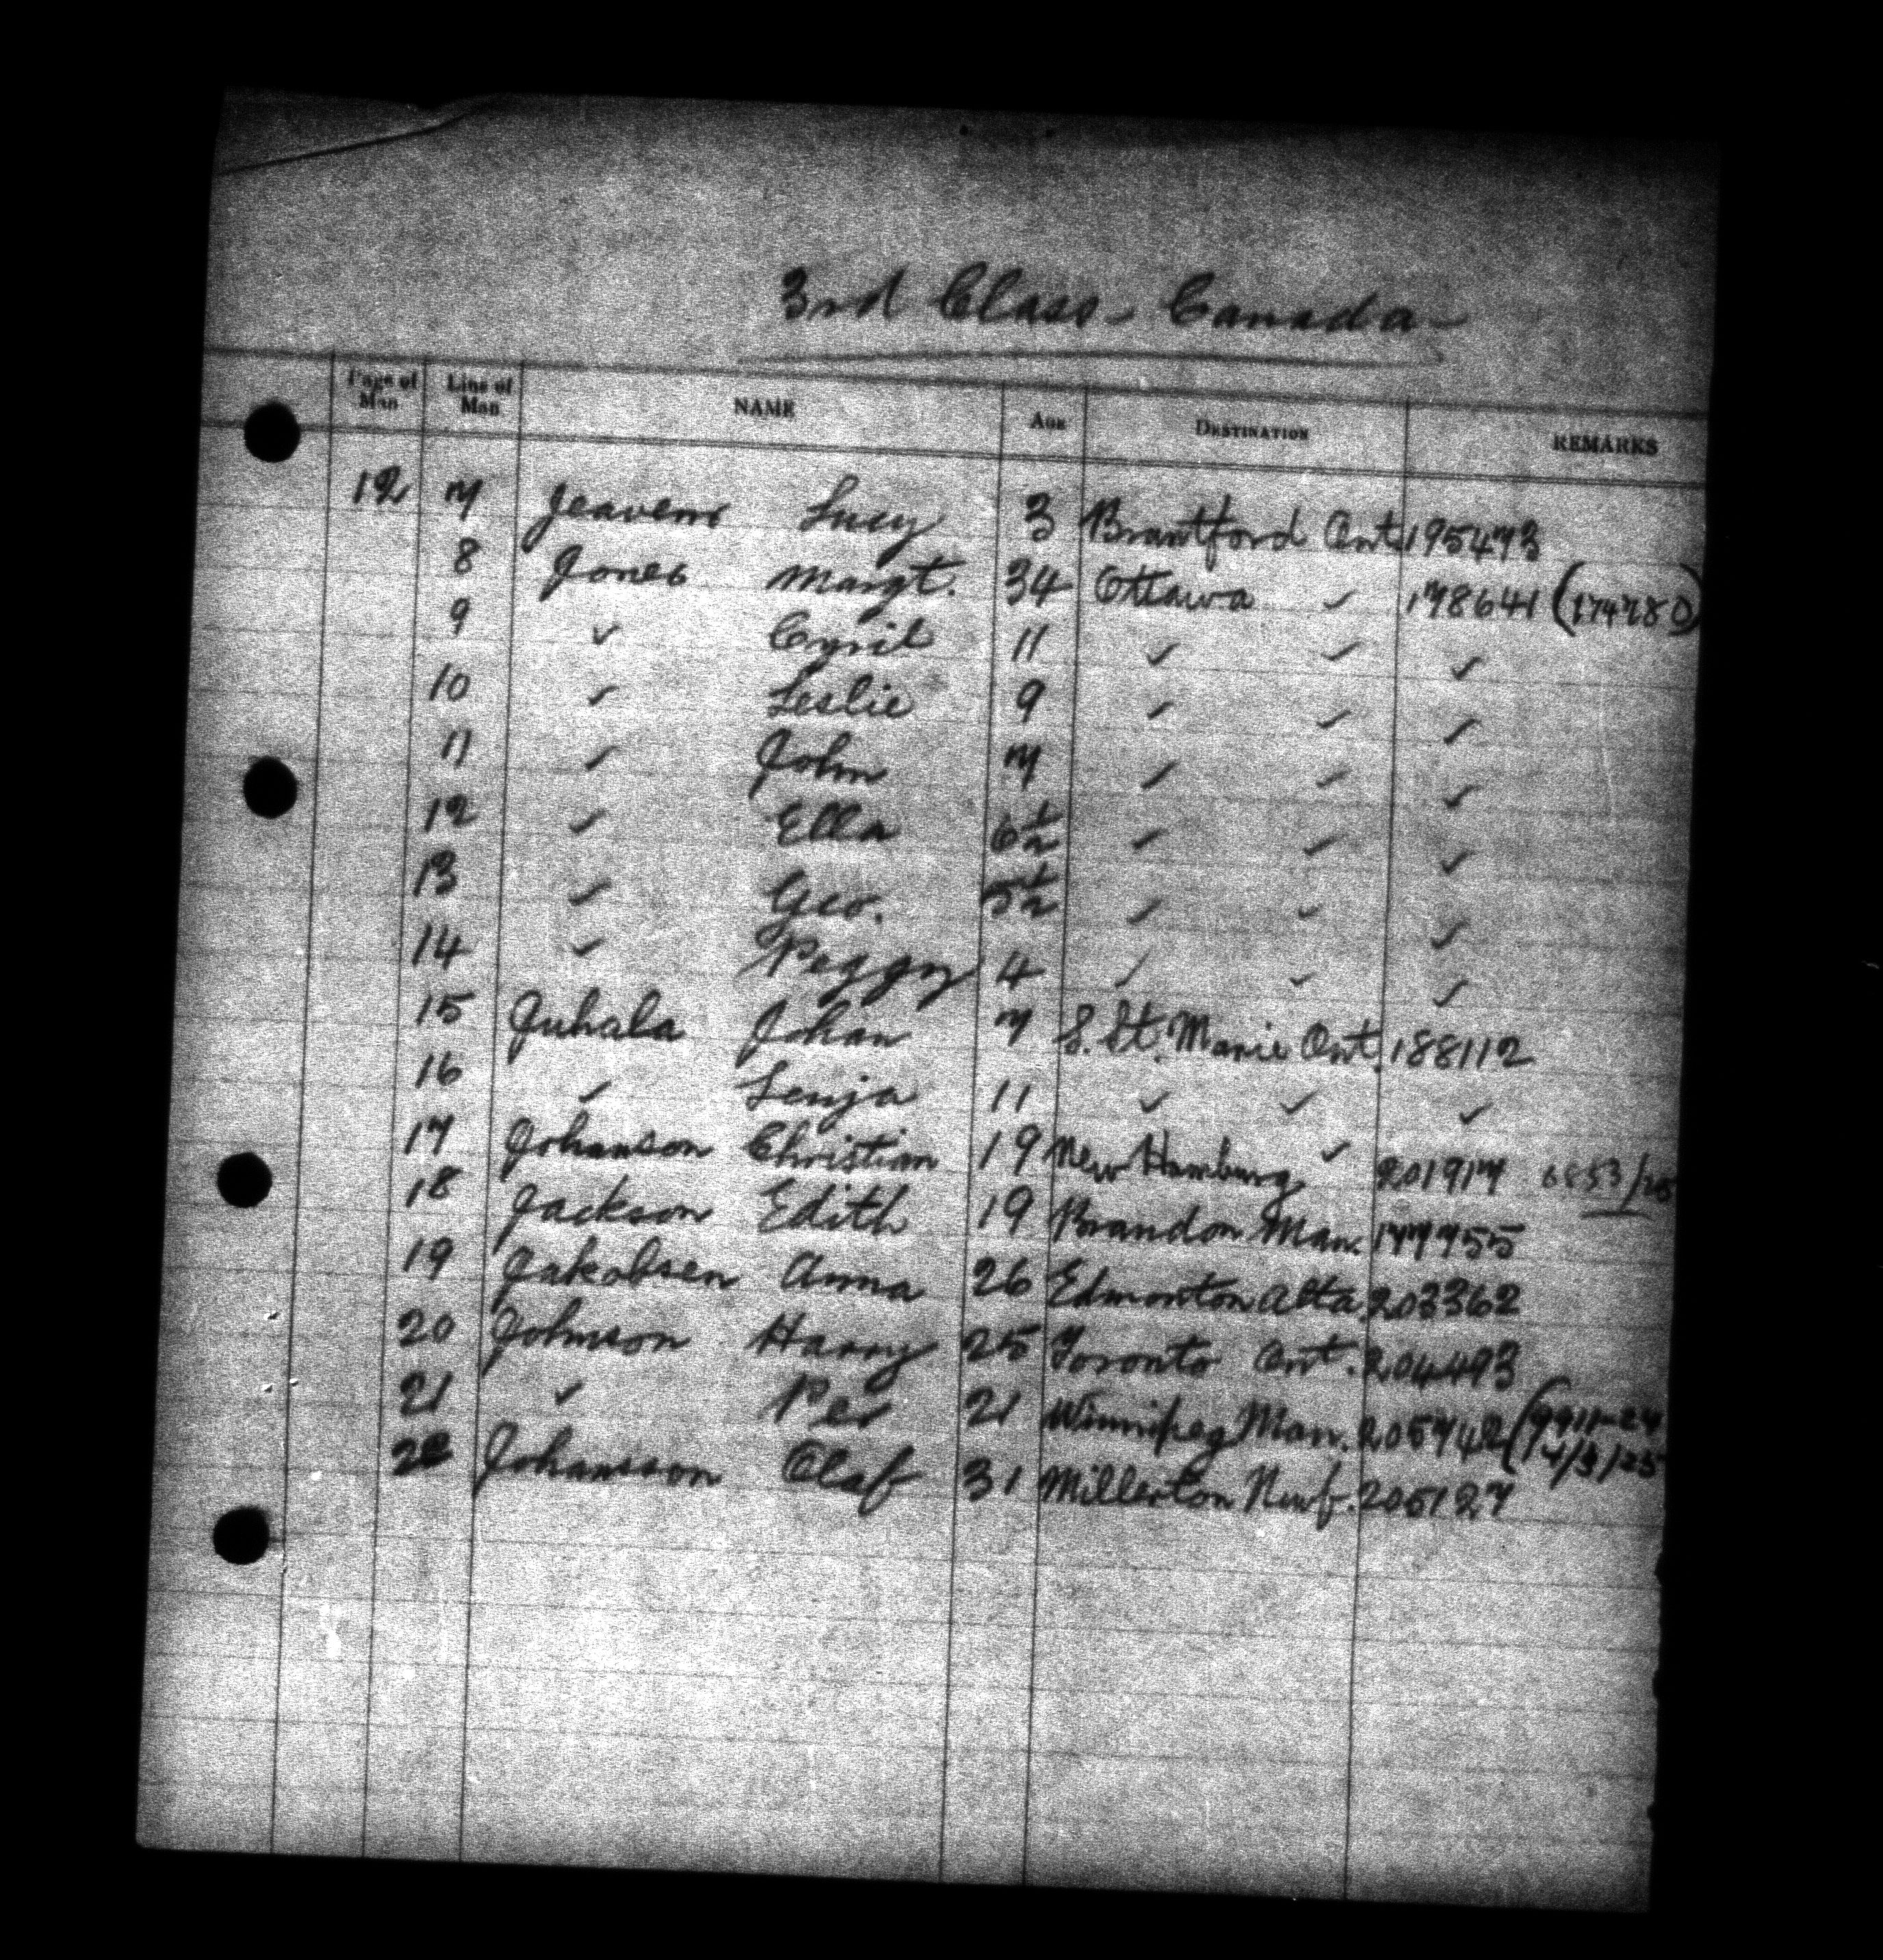 3rd Class - Canada -
Page of Man Line of Man NAME AGE DESTINATION REMARKS
12 7 Jeavons Lucy 3 Brantford Ont 195473
8 Jones Margt. 34 Ottawa ✓ 178641 (174780)
9 ✓ Cyril 11 ✓ ✓ ✓
10 ✓ Leslie 9 ✓ ✓ ✓
11 ✓ John 7 ✓ ✓ ✓
12 ✓ Ella 6½ ✓ ✓ ✓
13 ✓ Geo. 5½ ✓ ✓ ✓
14 ✓ Peggy 4 ✓ ✓ ✓
15 Juhala Johan 7 S. St. Marie Ont. 188112
16 ✓ Senja 11 ✓ ✓ ✓
17 Johanson Christian 19 New Hamburg ✓ 201917 6853/25
18 Jackson Edith 19 Brandon Man. 177755
19 Jakobsen Anna 26 Edmonton Alta. 203362
20 Johnson Harry 25 Toronto Ont. 204493
21 ✓ Per 21 Winnipeg Man. 205742 (9911-24
22 Johansson Olaf 31 Millerton Newf. 205127 14/3/25